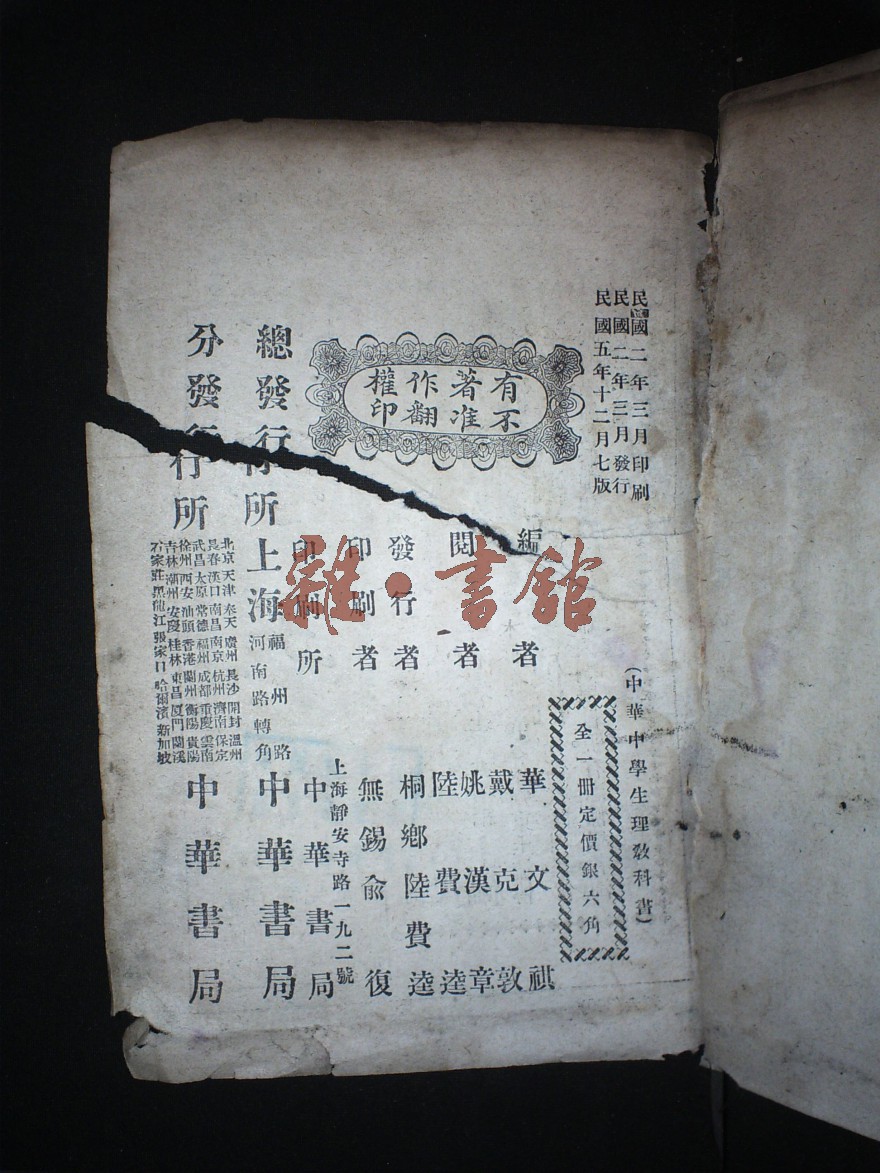 民國二年三月印刷
民國二年三月發行
民國五年十二月七版
(中華中學生理教科書)
全一冊定價銀六角
有著作權
不准翻印
編者 華文祺
閱者 戴克敦
姚漢章
陸費逵
發行者 桐鄉陸費逵
印刷者 無錫俞復
印刷所 上海靜安寺路一九二號
中華書局
總發行所 上海福州路
河南路轉角 中華書局
分發行所
北京 天津 奉天 廣州 長沙 開封 溫州
長春 漢口 南昌 南京 杭州 濟南 保定
武昌 太原 常德 福州 成都 重慶 雲南
徐州 西安 汕頭 香港 蘭州 衡陽 貴陽
吉林 潮州 安慶 桂林 東昌 厦門 蘭溪
石家莊 黑龍江 張家口 哈爾濱 新加坡
中華書局
雜·書館